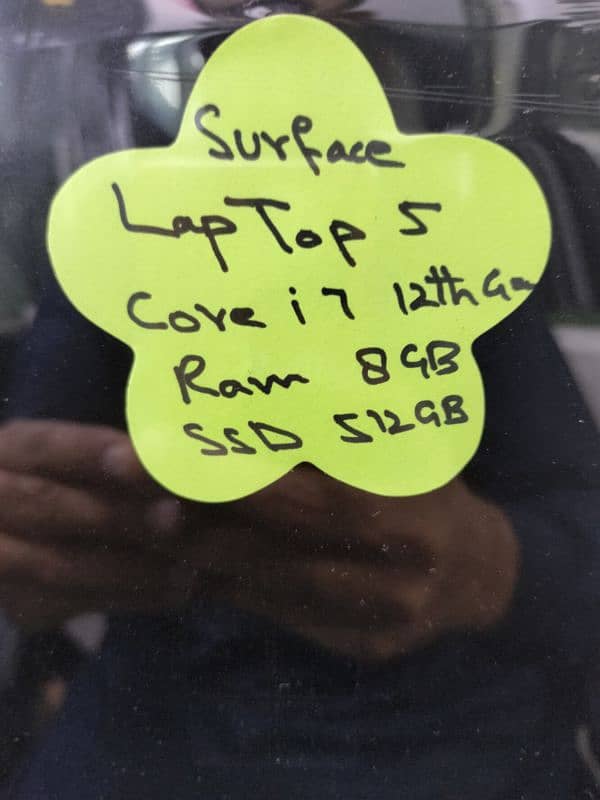 Surface
LapTop 5
Core i7 12th Gen
Ram 8GB
SSD 512GB